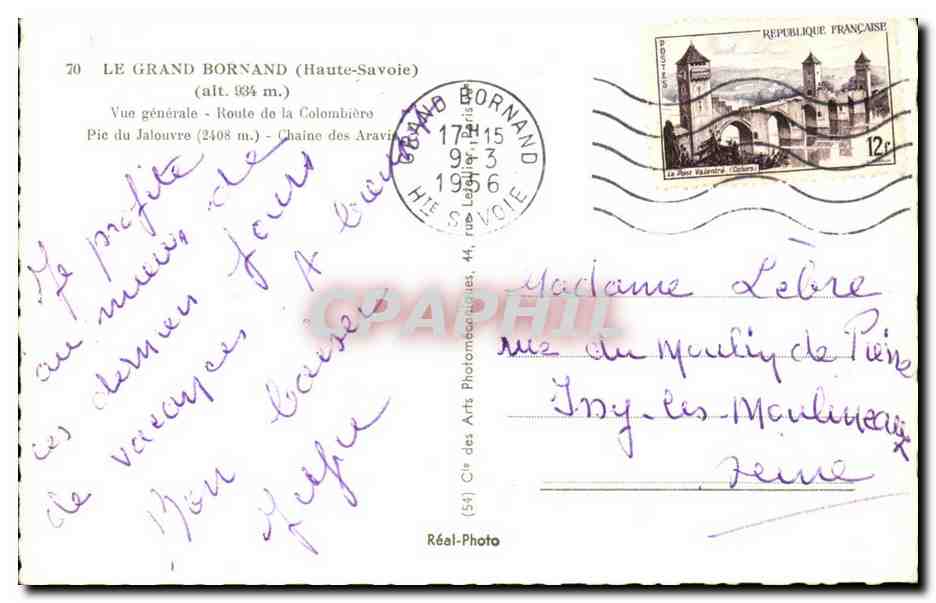 70 LE GRAND BORNAND (Haute-Savoie)
(alt. 934 m.)
Vue générale - Route de la Colombière
Pic du Jalouvre (2408 m.) - Chaîne des Aravis
Je profite
au mieux de
ces derniers jours
de vacances. A bientôt
Bon baiser
(54) Cie des Arts Photomécaniques, 44, rue Letellier, Paris
Réal-Photo
GRAND BORNAND
17H15
9-3
1956
HTE SAVOIE
REPUBLIQUE FRANÇAISE
POSTES
12F
Le Pont Valentré (Cahors)
Madame Lèbre
rue du Moulin de Pierre
Issy-les-Moulineaux
Seine
CPAPHIL